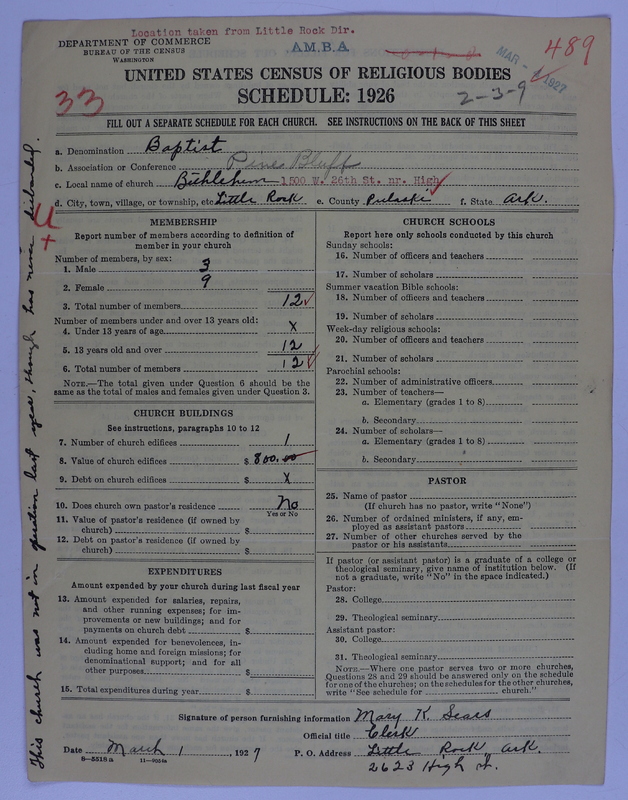 Location taken from Little Rock Dir.
DEPARTMENT OF COMMERCE
BUREAU OF THE CENSUS
WASHINGTON
A.M.B.A
MAR - 1927
489
2-3-9
UNITED STATES CENSUS OF RELIGIOUS BODIES
SCHEDULE: 1926
33
FILL OUT A SEPARATE SCHEDULE FOR EACH CHURCH. SEE INSTRUCTIONS ON THE BACK OF THIS SHEET
a. Denomination Baptist
b. Association or Conference Pines Bluff
c. Local name of church Bethlehem 1500 W. 26th St. nr. High
d. City, town, village, or township, etc. Little Rock e. County Pulaski f. State Ark.
MEMBERSHIP
Report number of members according to definition of
member in your church
Number of members, by sex:
1. Male 3
2. Female 9
3. Total number of members 12
Number of members under and over 13 years old:
4. Under 13 years of age X
5. 13 years old and over 12
6. Total number of members 12
NOTE.—The total given under Question 6 should be the
same as the total of males and females given under Question 3.
CHURCH BUILDINGS
See instructions, paragraphs 10 to 12
7. Number of church edifices 1
8. Value of church edifices $ 800.00
9. Debt on church edifices $ X
10. Does church own pastor's residence No
Yes or No
11. Value of pastor's residence (if owned by
church) $
12. Debt on pastor's residence (if owned by
church) $
EXPENDITURES
Amount expended by your church during last fiscal year
13. Amount expended for salaries, repairs,
and other running expenses; for im-
provements or new buildings; and for
payments on church debt $
14. Amount expended for benevolences, in-
cluding home and foreign missions; for
denominational support; and for all
other purposes $
15. Total expenditures during year $
CHURCH SCHOOLS
Report here only schools conducted by this church
Sunday schools:
16. Number of officers and teachers
17. Number of scholars
Summer vacation Bible schools:
18. Number of officers and teachers
19. Number of scholars
Week-day religious schools:
20. Number of officers and teachers
21. Number of scholars
Parochial schools:
22. Number of administrative officers
23. Number of teachers—
a. Elementary (grades 1 to 8)
b. Secondary
24. Number of scholars—
a. Elementary (grades 1 to 8)
b. Secondary
PASTOR
25. Name of pastor
(If church has no pastor, write "None")
26. Number of ordained ministers, if any, em-
ployed as assistant pastors
27. Number of other churches served by the
pastor or his assistants
If pastor (or assistant pastor) is a graduate of a college or
theological seminary, give name of institution below. (If
not a graduate, write "No" in the space indicated.)
Pastor:
28. College
29. Theological seminary
Assistant pastor:
30. College
31. Theological seminary
NOTE.—Where one pastor serves two or more churches,
Questions 28 and 29 should be answered only on the schedule
for one of the churches; on the schedules for the other churches,
write "See schedule for church."
Signature of person furnishing information Mary K. Sears
Official title Clerk
Date March 1, 1927 P. O. Address Little Rock, Ark.
8-5518a 11-9054a
2623 High st.
This church was not in operation last year, though has never disbanded.